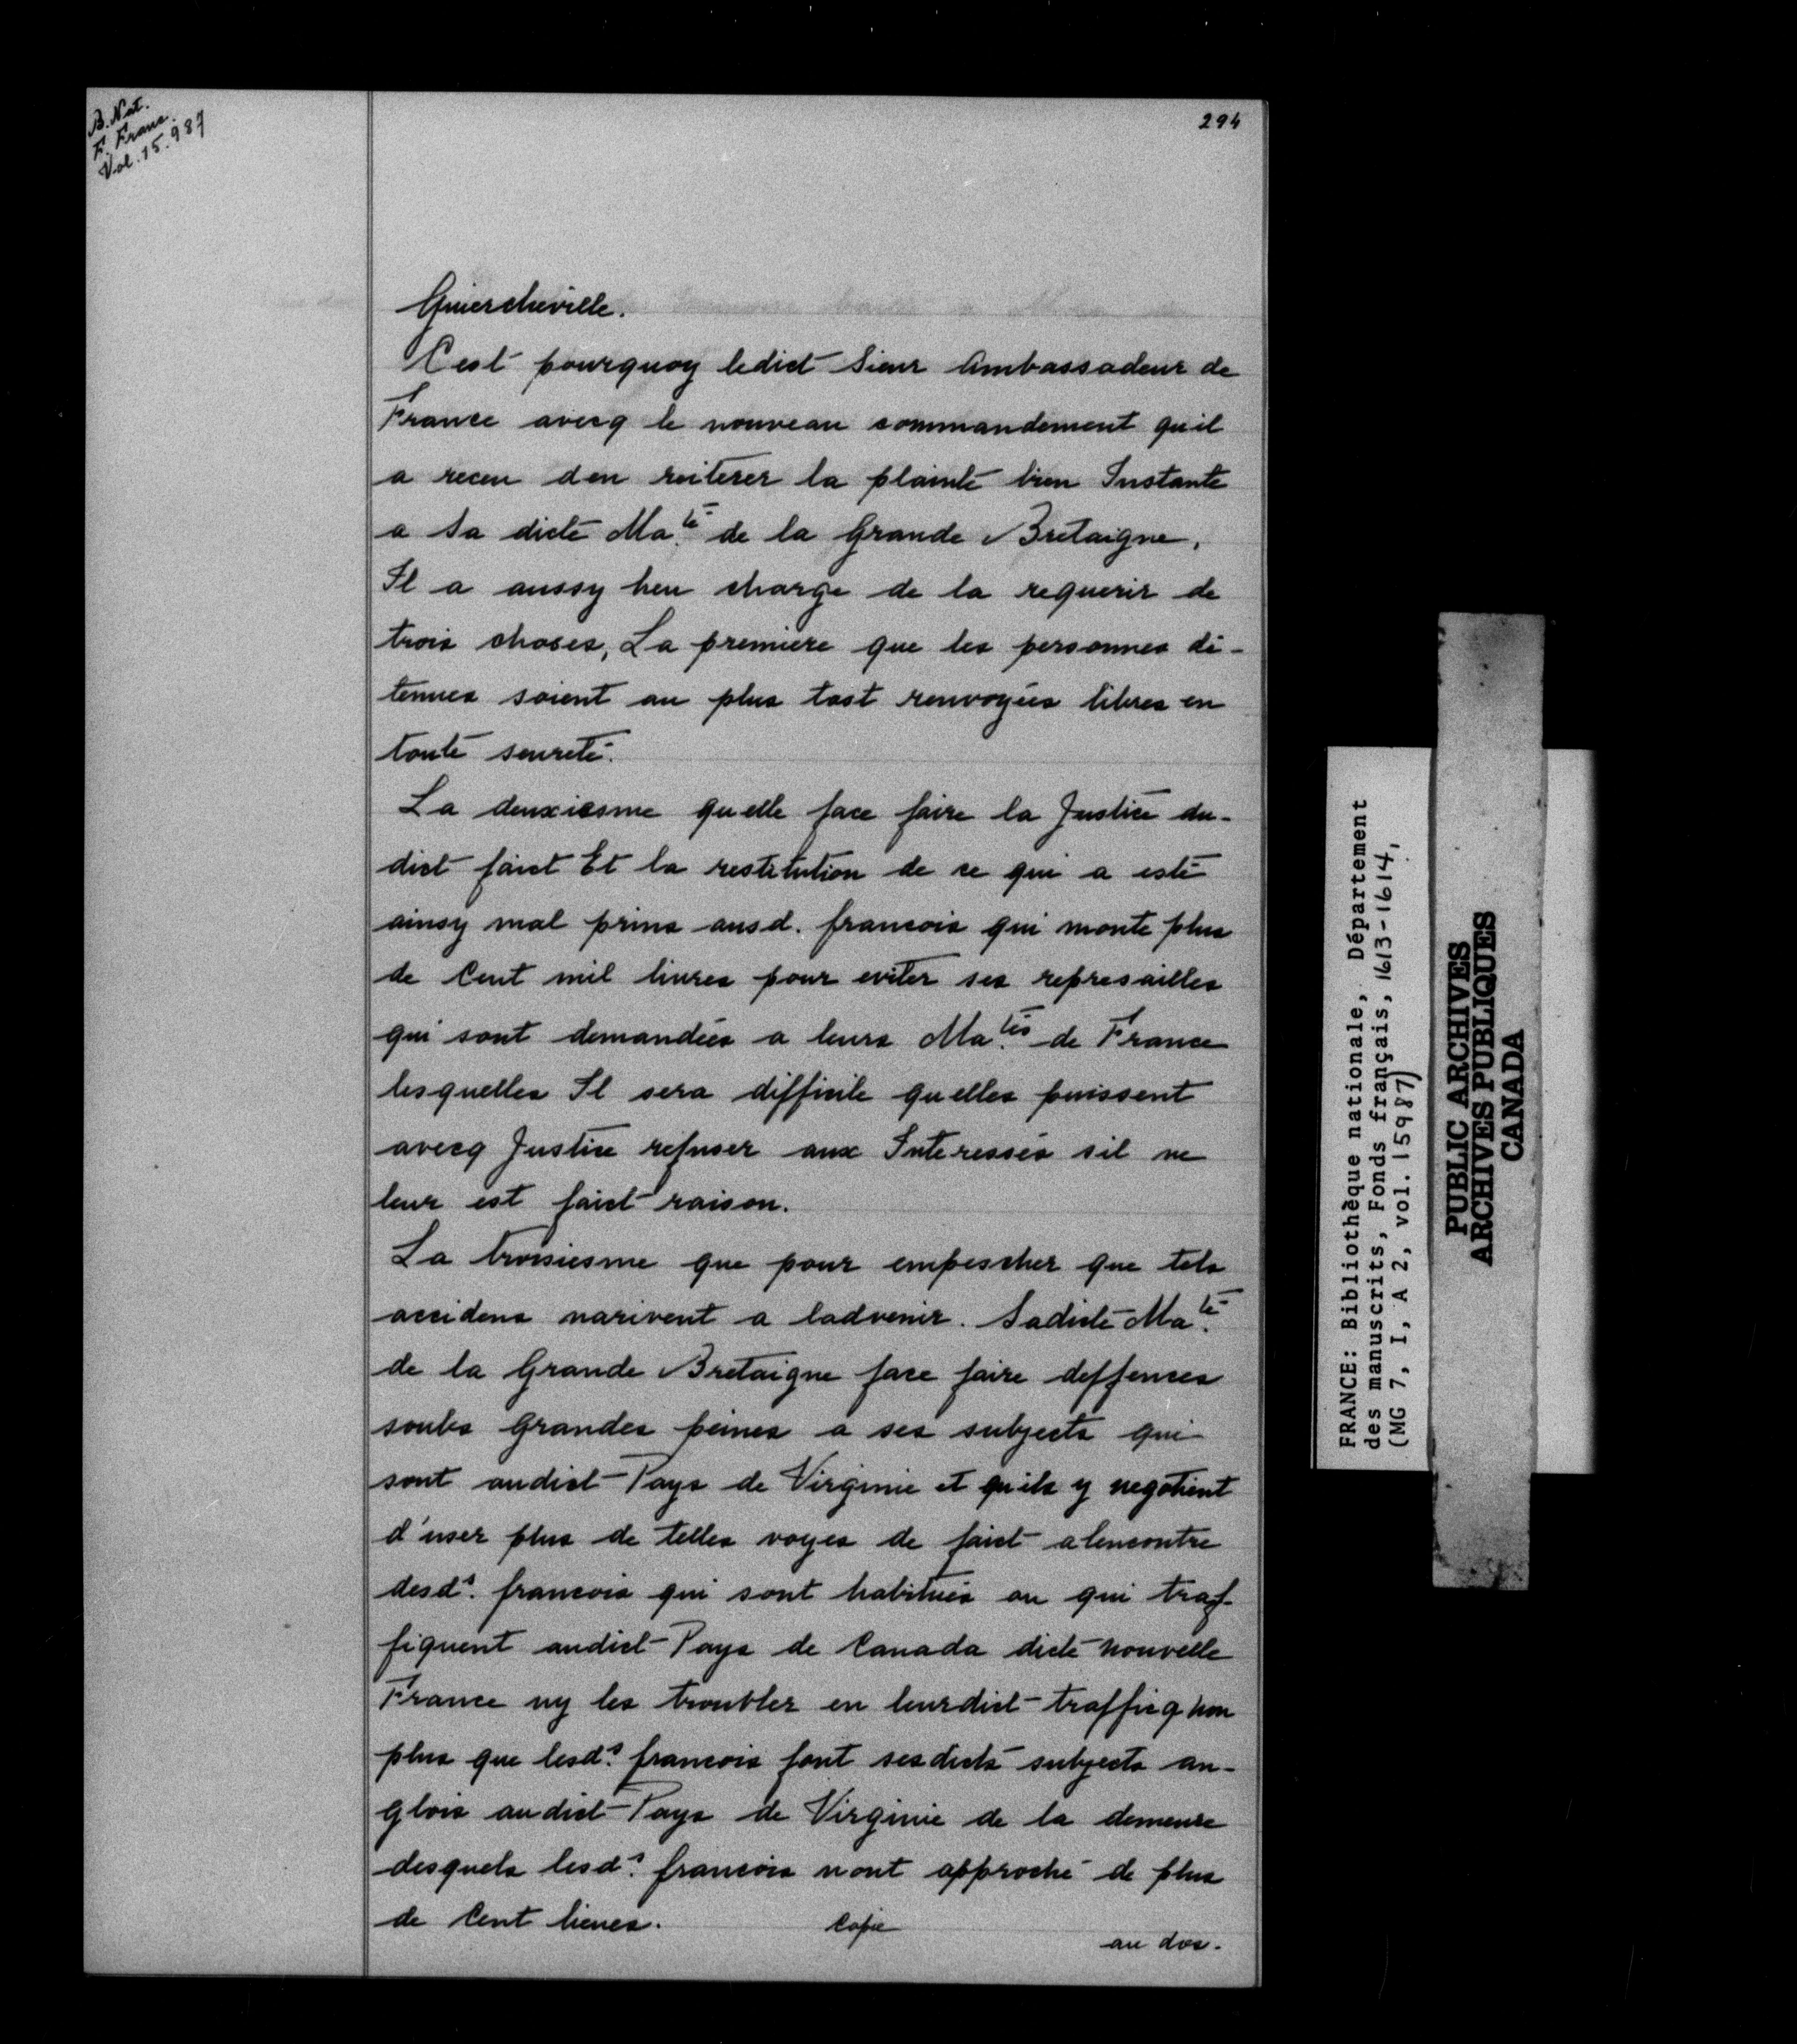 B. Nat.
F. Franc.
Vol. 15.987
294
Guiercheville.
C'est pourquoy ledict Sieur Ambassadeur de
France avecq le nouveau commandement qu'il
a receu d'en reiterer la plainte bien Instante
a Sa dicte Ma.té de la Grande Bretaigne,
Il a aussy heu charge de la requerir de
trois choses, La premiere que les personnes dé-
tenues soient au plus tost renvoyées libres en
toute seureté.
La deuxiesme qu elle face faire la Justice du-
dict faict Et la restitution de ce qui a esté
ainsy mal prins ausd. francois qui monte plus
de Cent mil livres pour eviter ses represailles
qui sont demandées a leurs Ma.tés de France
lesquelles Il sera difficile qu elles puissent
avecq Justice refuser aux Interessés s'il ne
leur est faict raison.
La troisiesme que pour empescher que tels
accidens narivent a ladvenir. Sadicte Ma.té
de la Grande Bretaigne face faire deffences
soubs grandes peines a ses subjects qui
sont audict Pays de Virginie et qu'ils y negotient
d'user plus de telles voyes de faict alencontre
desd.s francois qui sont habitués ou qui traf-
fiquent audict Pays de Canada dicte nouvelle
France ny les troubler en leurdict trafficq non
plus que lesd.s francois font sesdicts subjects an-
glois audict Pays de Virginie de la demeure
desquels lesd.s francois n ont approché de plus
de Cent lieues.
Copie
au dos.
FRANCE: Bibliothèque nationale, Département
des manuscrits, Fonds français, 1613-1614,
(MG 7, I, A 2, vol. 15987)
PUBLIC ARCHIVES
ARCHIVES PUBLIQUES
CANADA